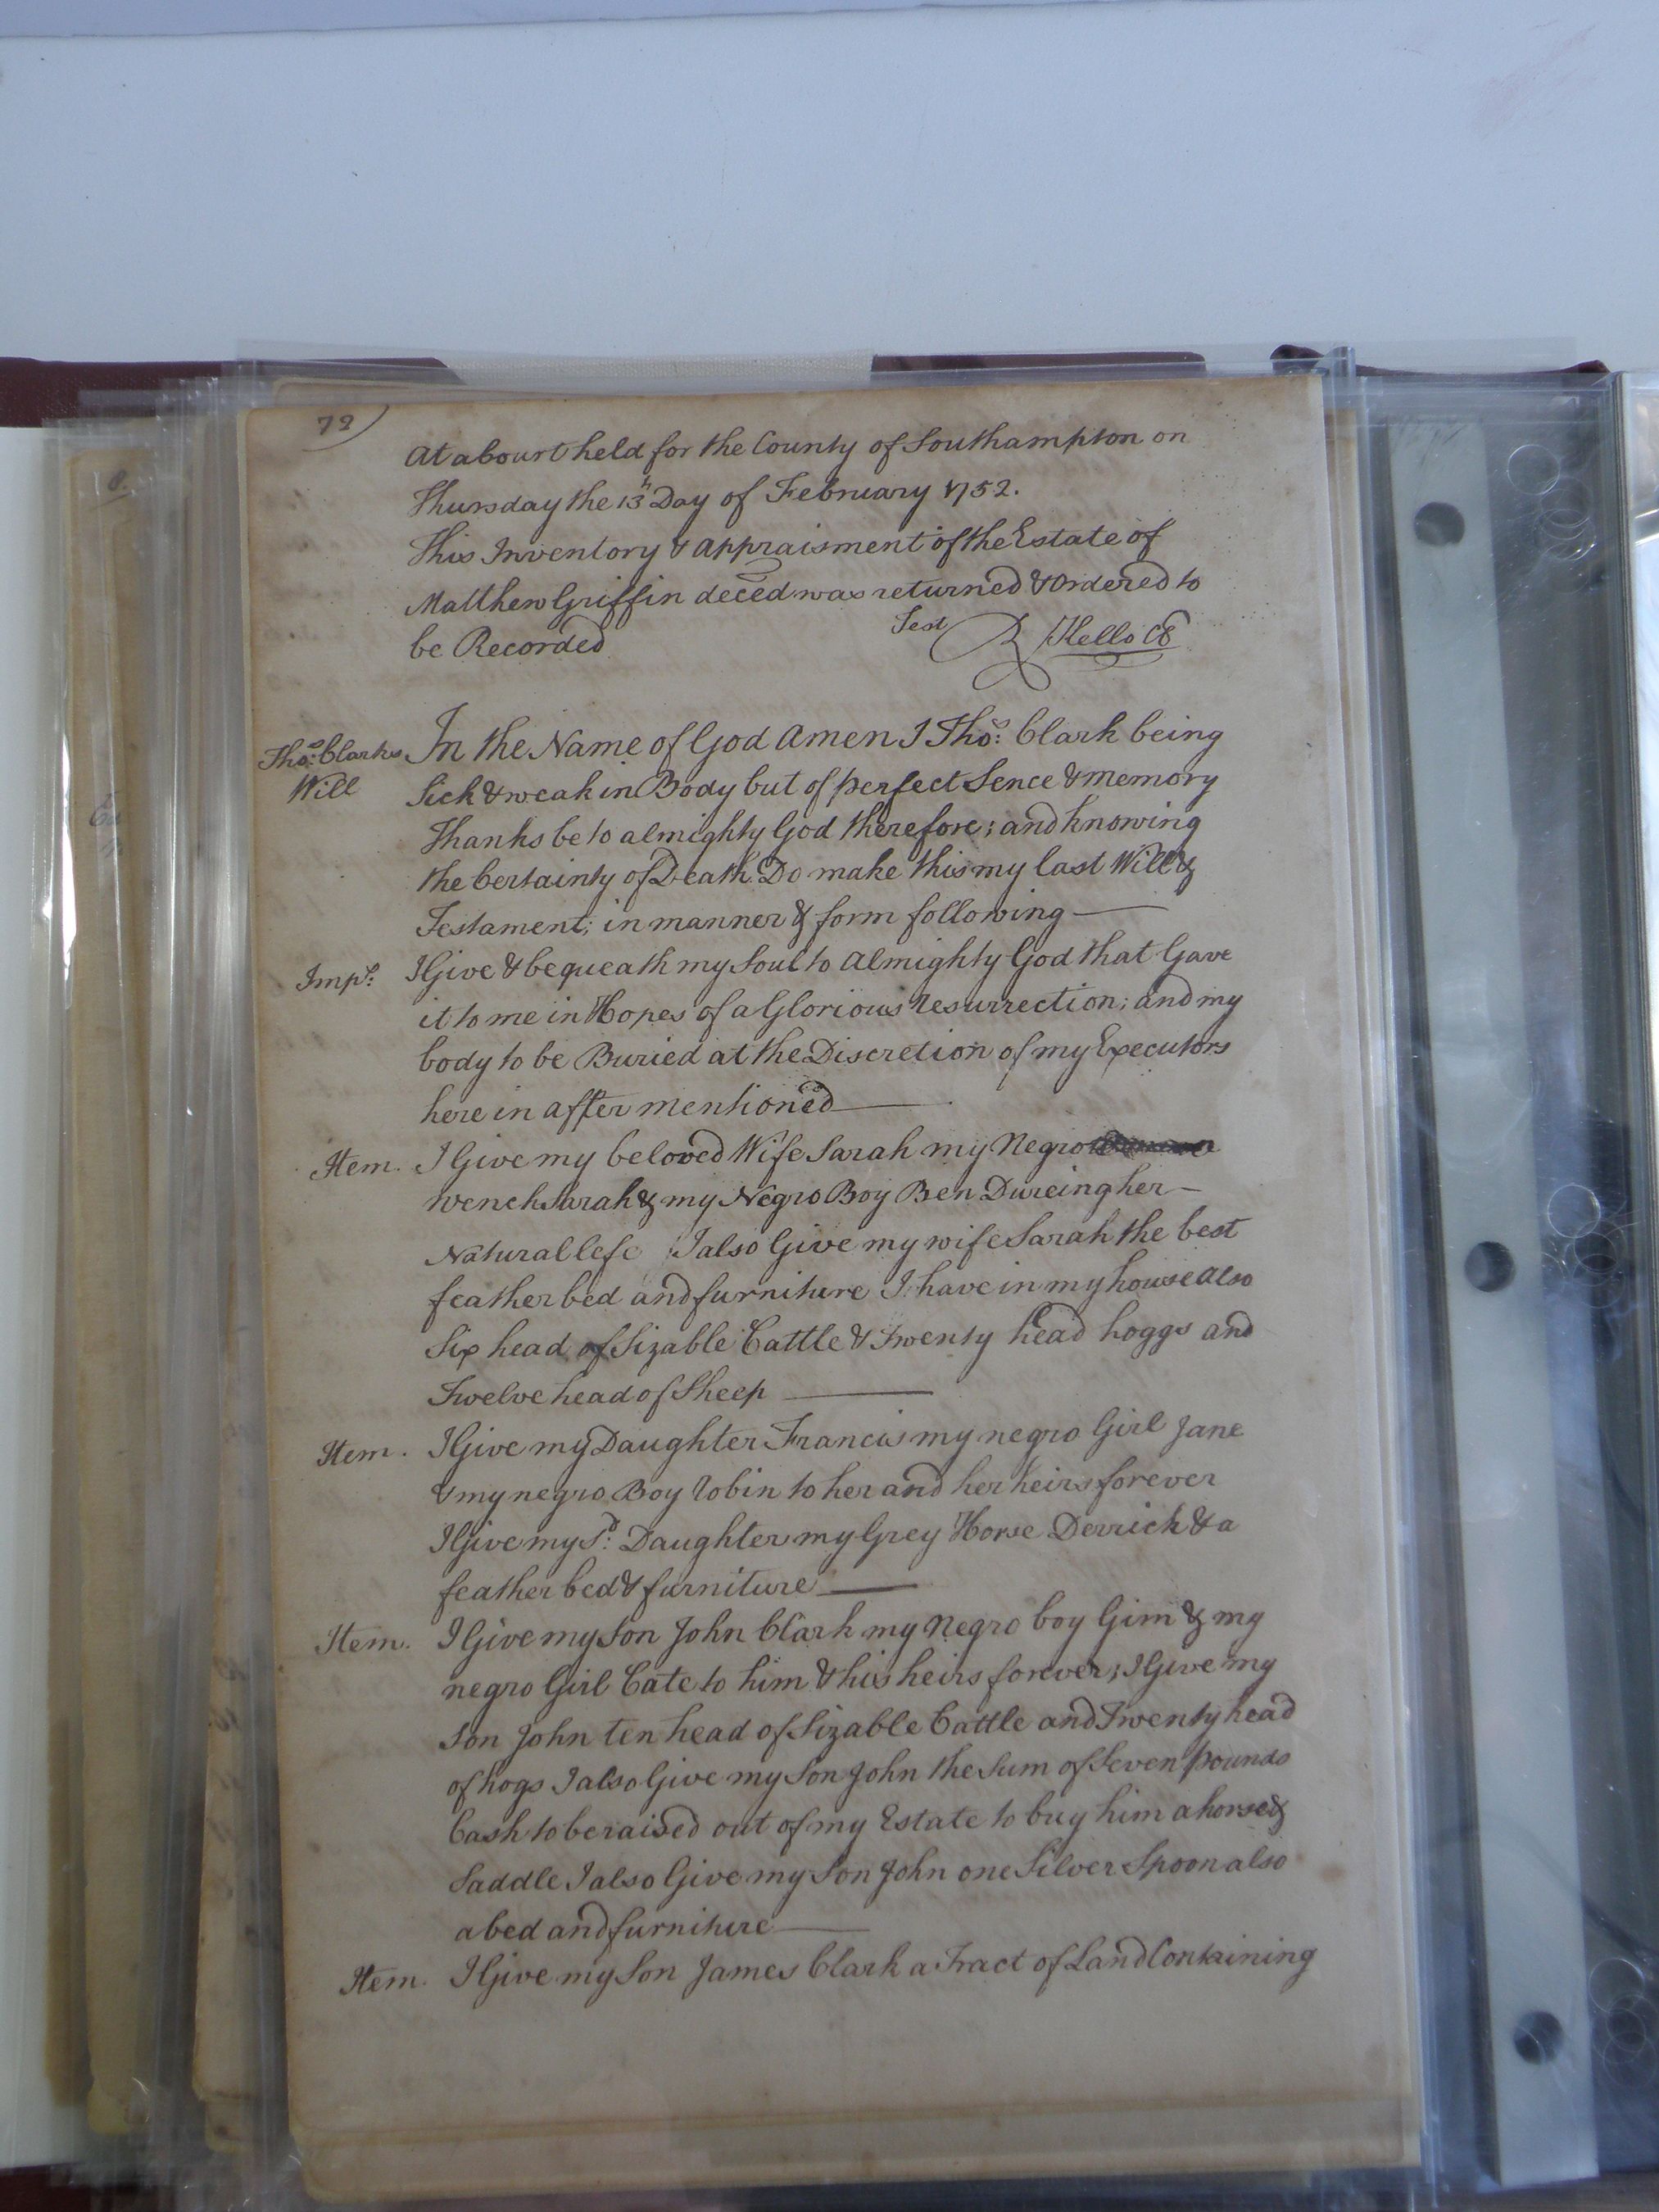 72)
At a Court held for the County of Southampton on
Thursday the 13th Day of February 1752.
This Inventory & appraisment of the Estate of
Matthew Griffin deced was returned & Ordered to
be Recorded
Test R Kello CC
Thos. Clarks
Will
In the Name of God Amen I Thos. Clark being
Sick & weak in Body but of perfect Sence & memory
Thanks be to almighty God therefore; and knowing
the Certainty of Death Do make this my last Will &
Testament; in manner & form following
Imps. I Give & bequeath my Soul to Almighty God that Gave
it to me in Hopes of a Glorious Resurrection; and my
body to be Buried at the Discretion of my Executors
here in after mentioned
Item. I Give my beloved Wife Sarah my Negro
wench Sarah & my Negro Boy Ben Dureing her
Natural lefe I also Give my wife Sarah the best
feather bed and furniture I have in my house also
Six head of Sizable Cattle & Twenty head hoggs and
Twelve head of Sheep
Item. I Give my Daughter Francis my negro Girl Jane
& my negro Boy Robin to her and her heirs forever
I Give my Sd. Daughter my Grey Horse Derrick & a
feather bed & furniture
Item. I Give my Son John Clark my negro boy Gim & my
negro Girl Cate to him & his heirs forever; I Give my
Son John ten head of Sizable Cattle and Twenty head
of hogs I also Give my Son John the Sum of Seven pounds
Cash to be raised out of my Estate to buy him a horse &
Saddle I also Give my Son John one Silver Spoon also
a bed and furniture
Item. I Give my Son James Clark a Tract of Land Containing